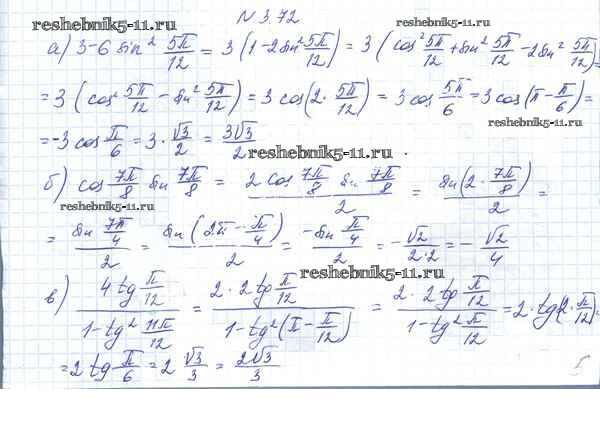 N 3.72
reshebnik5-11.ru
а) 3-6 sin² 5π/12 = 3 (1-2sin² 5π/12) = 3 (cos² 5π/12 + sin² 5π/12 - 2sin² 5π/12) =
= 3 (cos² 5π/12 - sin² 5π/12) = 3 cos(2· 5π/12) = 3 cos 5π/6 = 3 cos (π - π/6) =
reshebnik5-11.ru
= -3 cos π/6 = 3· √3/2 = 3√3/2 .
reshebnik5-11.ru
б) cos 7π/8 sin 7π/8 = 2 cos 7π/8 sin 7π/8 / 2 = sin(2· 7π/8) / 2 =
reshebnik5-11.ru
= sin 7π/4 / 2 = sin (2π - π/4) / 2 = -sin π/4 / 2 = - √2/2·2 = - √2/4
reshebnik5-11.ru
в) 4 tg π/12 / 1-tg² 11π/12 = 2·2 tg π/12 / 1-tg² (π - π/12) = 2·2 tg π/12 / 1-tg² π/12 = 2·tg(2· π/12) =
= 2 tg π/6 = 2 √3/3 = 2√3/3